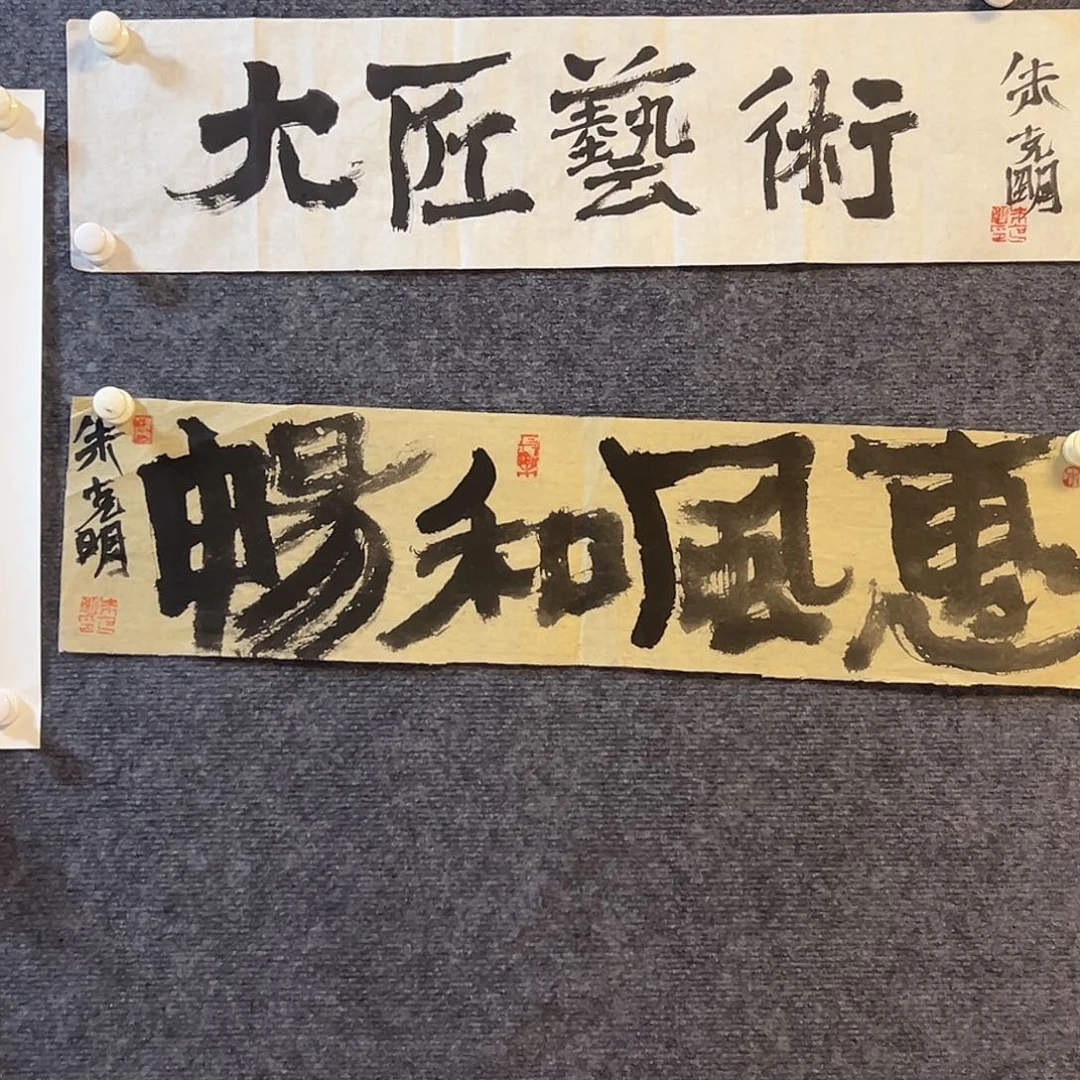 九匠藝術
朱克明
惠風和暢
朱克明